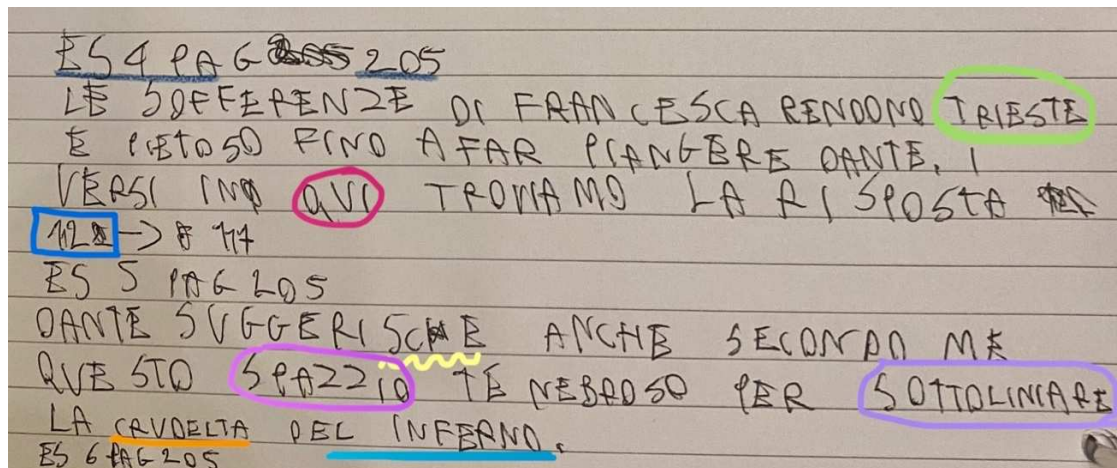 ES 4 PAG 205
LE SOFFERENZE DI FRANCESCA RENDONO TRIESTE
E PIETOSO FINO A FAR PIANGERE DANTE. I
VERSI IN QUI TROVIAMO LA RISPOSTA
112 -> 117
ES 5 PAG 205
DANTE SUGGERISCHE ANCHE SECONDO ME
QUESTO SPAZZIO TENEBROSO PER SOTTOLINIARE
LA CRUDELTA DEL INFERNO.
ES 6 PAG 205